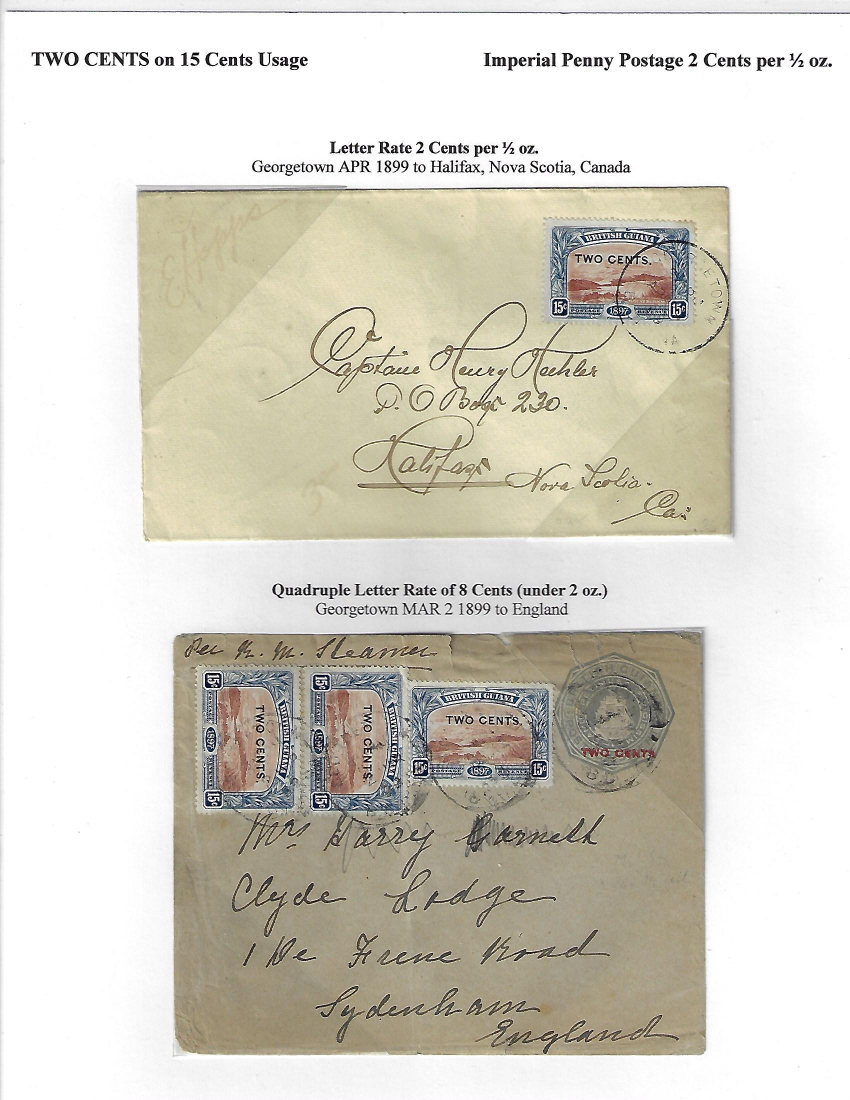 TWO CENTS on 15 Cents Usage
Imperial Penny Postage 2 Cents per ½ oz.
Letter Rate 2 Cents per ½ oz.
Georgetown APR 1899 to Halifax, Nova Scotia, Canada
BRITISH GUIANA
TWO CENTS.
15c 1897 15c
POSTAGE REVENUE
Captain Henry
P. O Box 230.
Halifax
Nova Scotia.
Ca:
Quadruple Letter Rate of 8 Cents (under 2 oz.)
Georgetown MAR 2 1899 to England
Per R. M. Steamer
BRITISH GUIANA
TWO CENTS.
15c 1897 15c
BRITISH GUIANA
TWO CENTS.
15c 1897 15c
BRITISH GUIANA
TWO CENTS.
POSTAGE REVENUE
15c 1897 15c
TWO CENTS
Mrs Harry
Clyde Lodge
1 De Frene Road
Sydenham
England